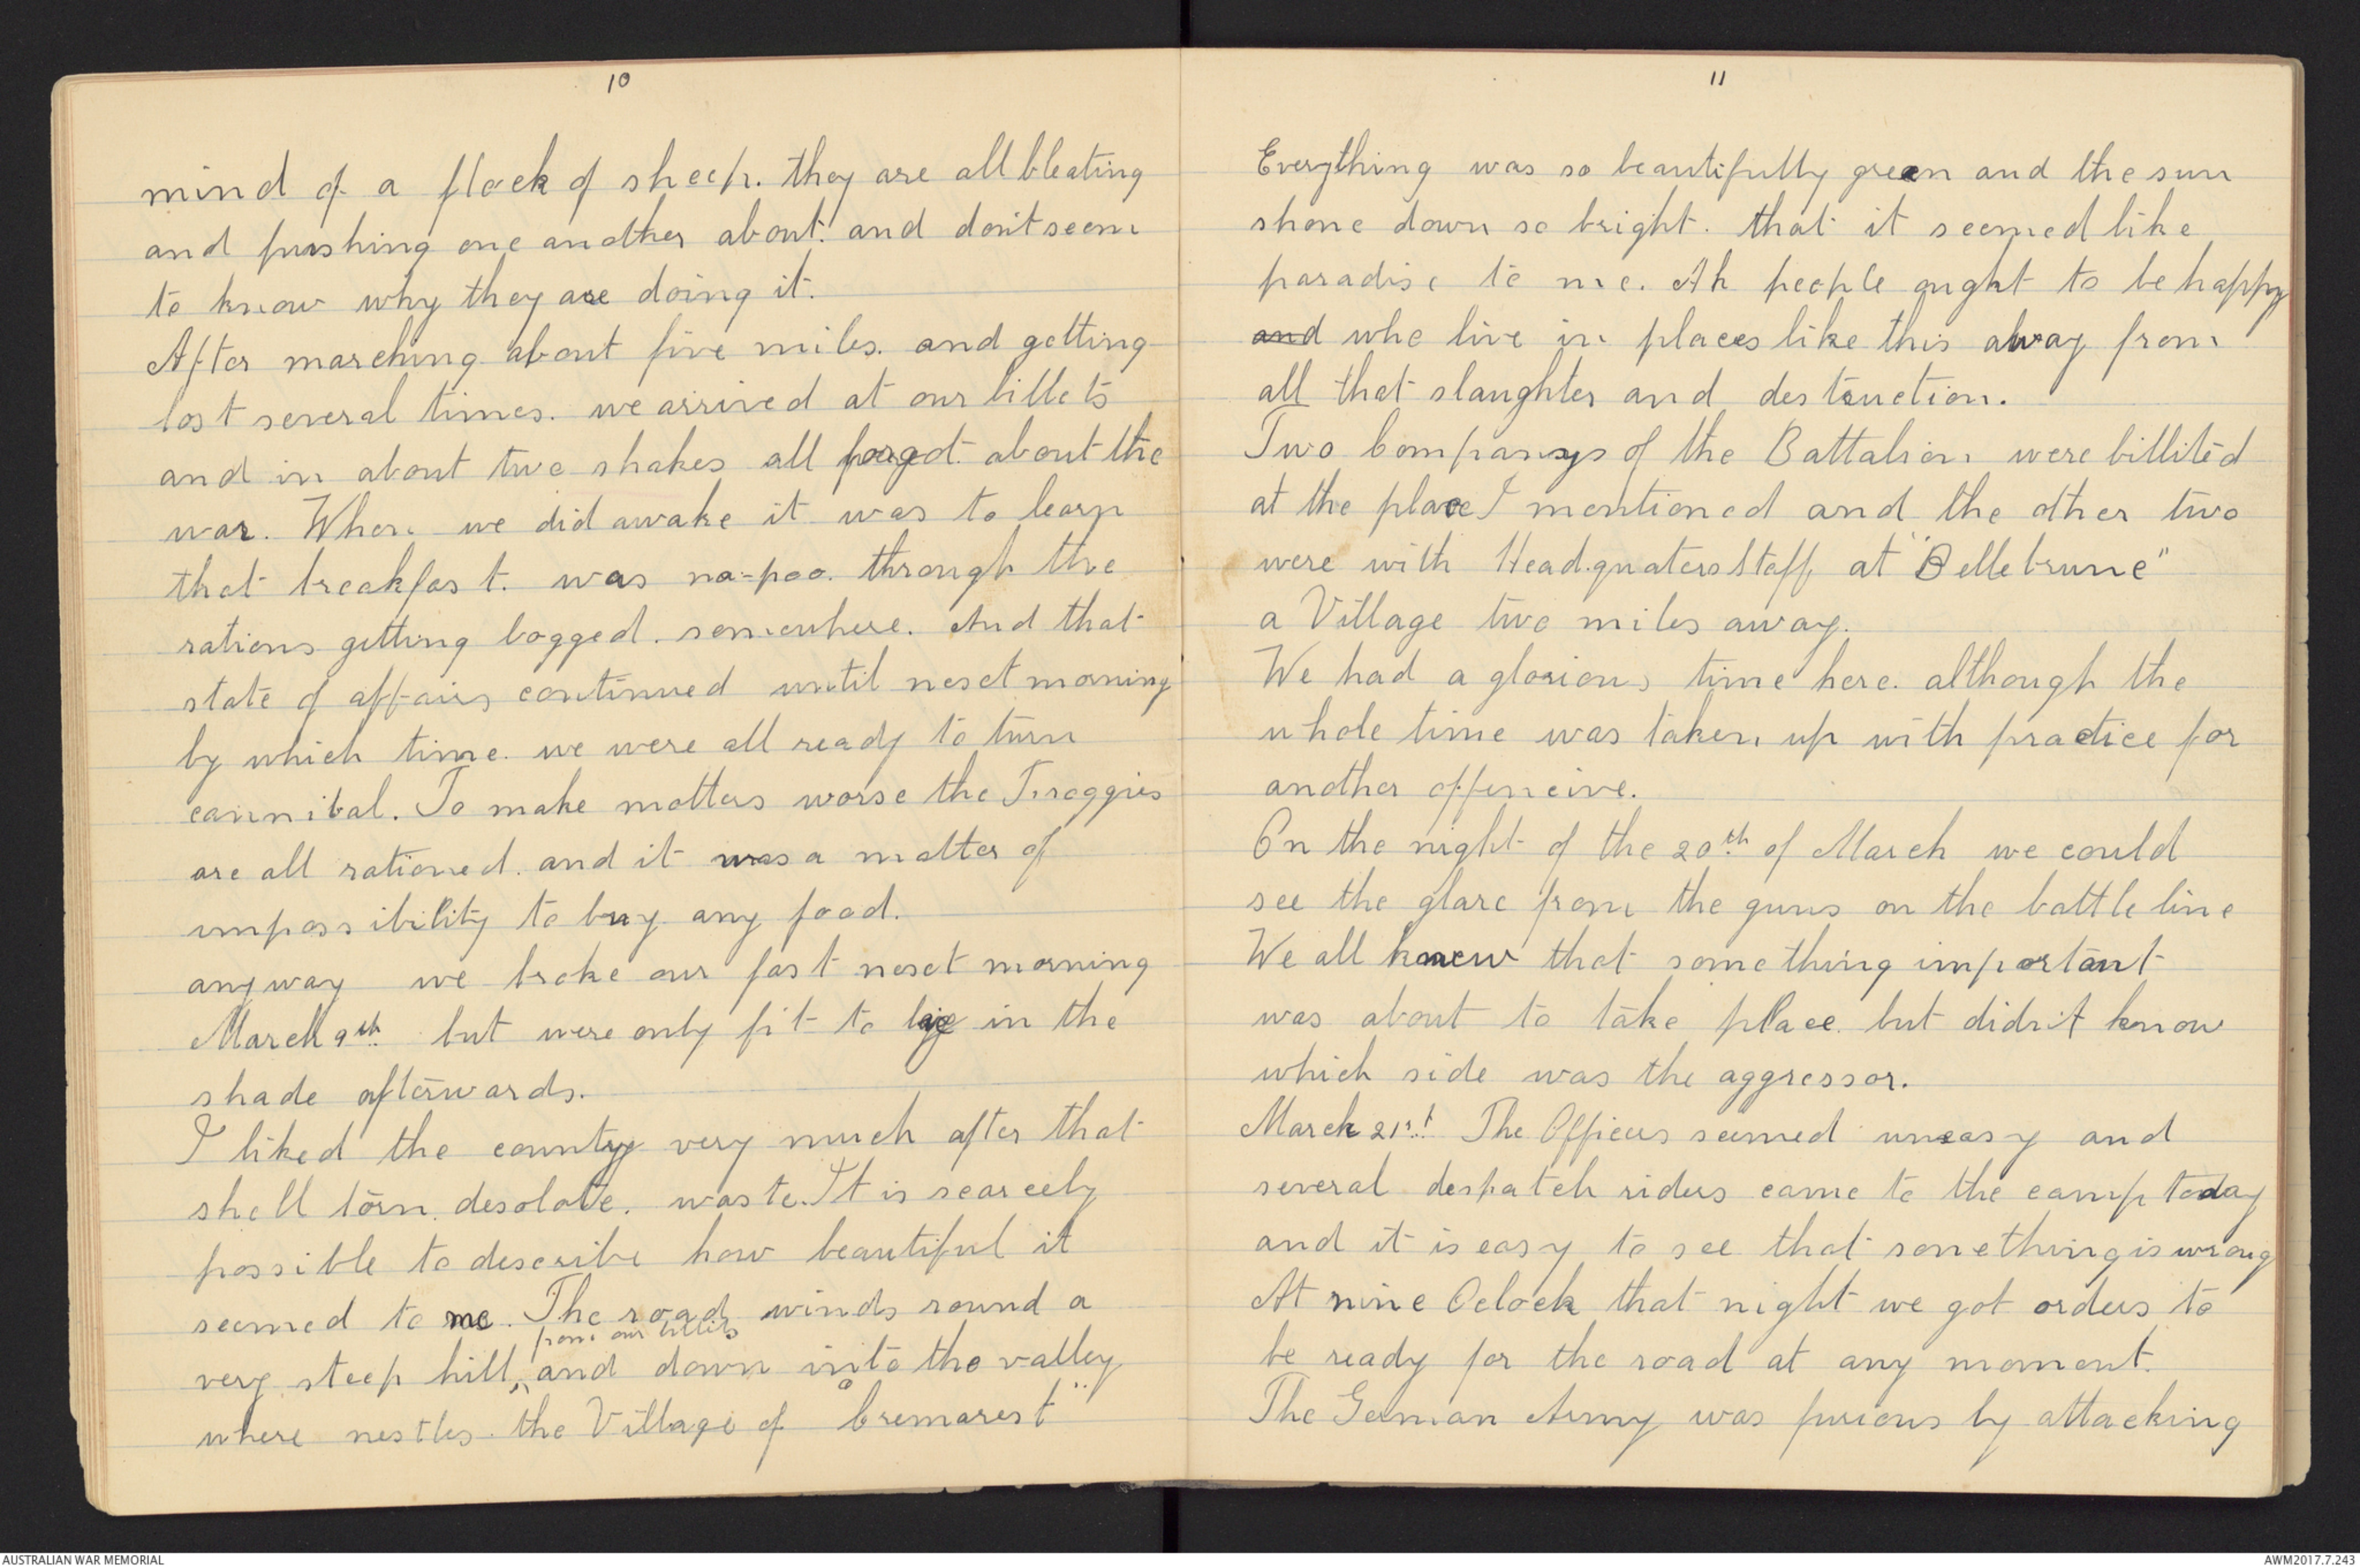 10
mind of a flock of sheep. they are all bleating
and pushing one another about. and don't seem
to know why they are doing it.
After marching about five miles. and getting
lost several times. we arrived at our billets
and in about two shakes all forgot about the
war. When we did awake it was to learn
that breakfast. was na-poo. through the
rations getting bogged. somewhere. And that
state of affairs continued until next morning
by which time. we were all ready to turn
cannibal. To make matters worse the Froggies
are all rationed. and it was a matter of
impossibility to buy any food.
anyway we broke our fast next morning
March 9th. but were only fit to lie in the
shade afterwards.
I liked the country very much after that
shell torn. desolate. waste. It is scarcely
possible to describe how beautiful it
seemed to me. The road winds round a
from our billets
very steep hill, and down into the valley
where nestles. the Village of "Cremarest"
11
Everything was so beautifully green and the sun
shone down so bright. that it seemed like
paradise to me. Ah people ought to be happy
and who live in places like this away from
all that slaughter and destruction.
Two Companys of the Battalion were billited
at the place I mentioned and the other two
were with Head.quaters Staff at "Bellebrune"
a Village two miles away.
We had a glorious time here. although the
whole time was taken up with practice for
another offencive.
On the night of the 20th of March we could
see the glare from the guns on the battle line
We all knew that something important
was about to take place. but didn't know
which side was the aggressor.
March 21st. The Officers seemed uneasy and
several despatch riders came to the camp today
and it is easy to see that something is wrong
At nine Oclock that night we got orders to
be ready for the road at any moment.
The German Army was furious by attacking
AUSTRALIAN WAR MEMORIAL
AWM2017.7.243